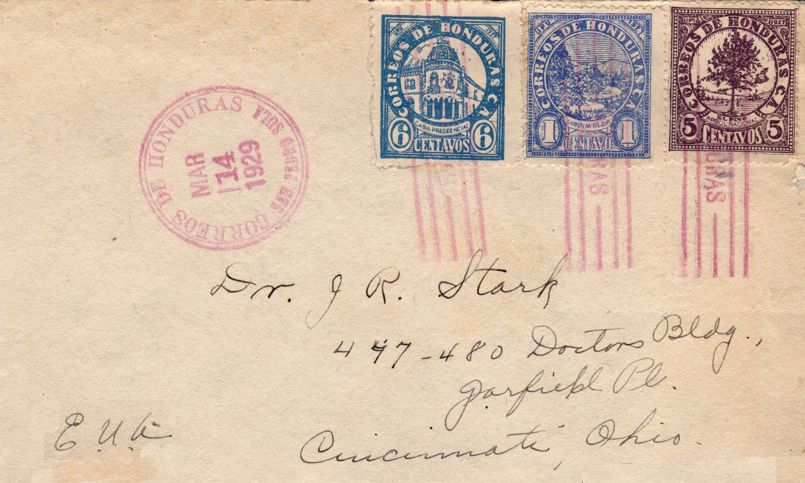 CORREOS DE HONDURAS C.A.
CASA PRESIDENCIAL
6 CENTAVOS 6
CORREOS DE HONDURAS C.A.
1 CENTAVO 1
CORREOS DE HONDURAS C.A.
EL PINO
5 CENTAVOS 5
CORREOS DE HONDURAS
SAN PEDRO SULA
MAR
14
1929
URAS
URAS
Dr. J R. Stark
447-480 Doctors Bldg.,
Garfield Pl.
Cincinnati, Ohio.
E.U.A